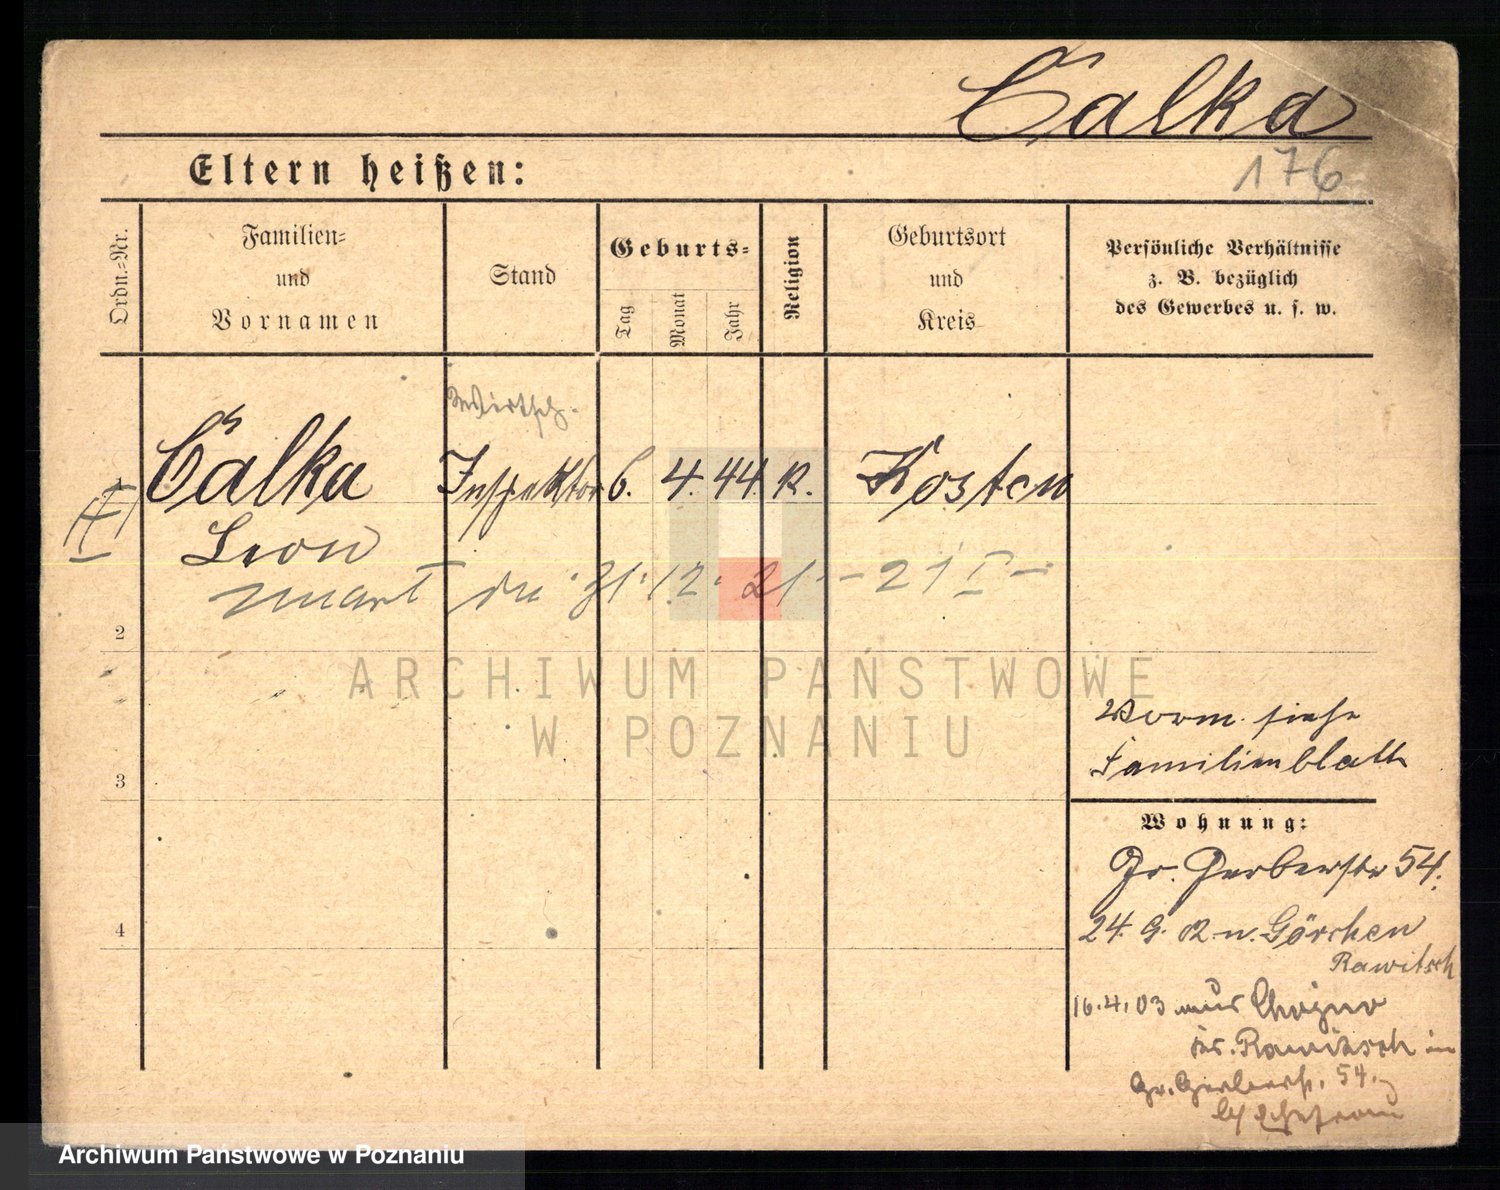 Calka
176
Eltern heißen:
Ordn.-Nr.
Familien-
und
Vornamen
Stand
Geburts-
Tag
Monat
Jahr
Religion
Geburtsort
und
Kreis
Persönliche Verhältnisse
z. B. bezüglich
des Gewerbes u. s. w.
Wirtsch.
1 Calka Inspektor 6. 4. 44. K. Kosten
Leon
zmarł dn 31.12.21 – 21 I –
2
ARCHIWUM PAŃSTWOWE
W POZNANIU
Vorm. siehe
Familienblatt
3
Wohnung:
Gr. Gerberstr 54.
24. 9. 02 n. Görchen
Rawitsch
4
16.4.03 aus Chojno
Kr. Rawitsch in
Gr. Gerberstr. 54.
b/ Ehefrau
Archiwum Państwowe w Poznaniu